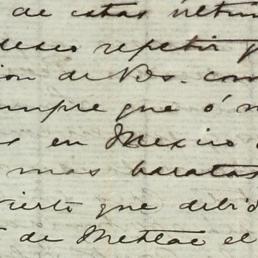 de estas últim
deseo repetir
ion de Vds. com
empre que ó
en Mexico
mas baratas
ierto que debid
de Metlac el